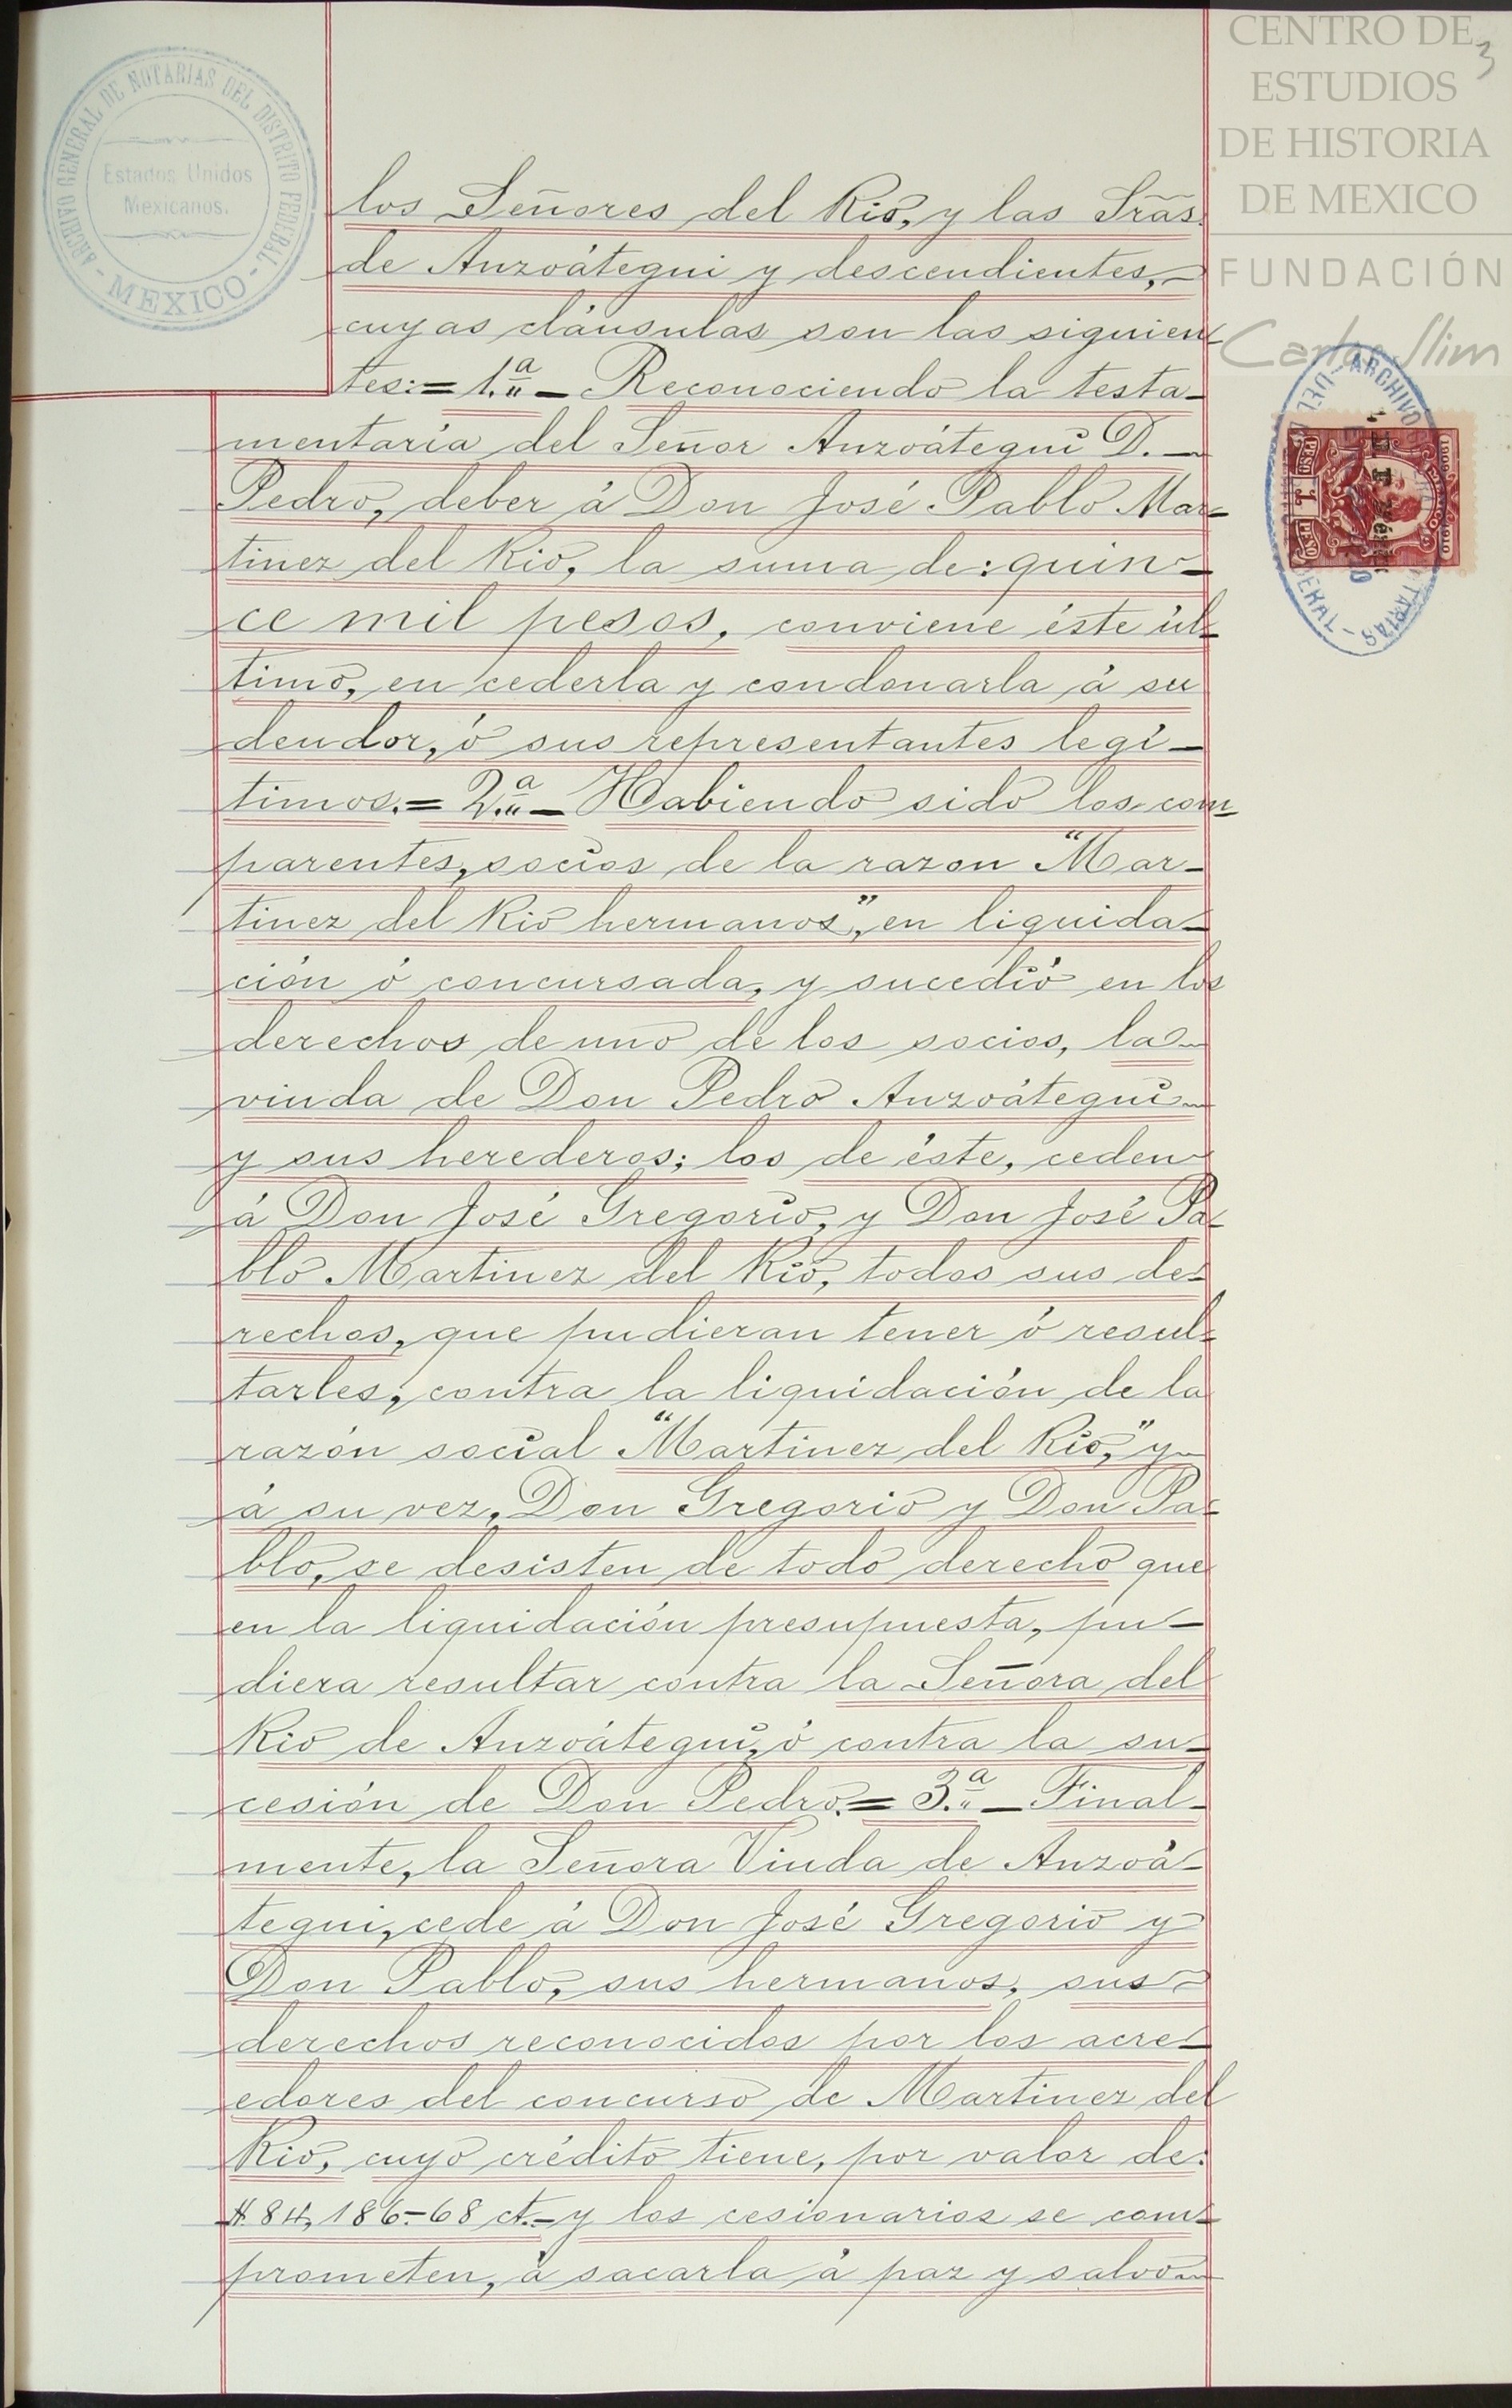 CENTRO DE
ESTUDIOS
DE HISTORIA
DE MEXICO
FUNDACIÓN
Carlos Slim
3
ARCHIVO GENERAL DE NOTARIAS DEL DISTRITO FEDERAL
- MEXICO -
Estados Unidos
Mexicanos.
los Señores del Rio, y las Srãs.
de Anzoátegui y descendientes,-
cuyas cláusulas son las siguien
tes:=1.ª- Reconociendo la testa-
mentaría del Señor Anzoátegui D.-
Pedro, deber á Don José Pablo Mar-
tinez del Rio, la suma de: quin-
ce mil pesos, conviene éste úl-
timo, en cederla y condonarla á su
deudor, ó sus representantes legí-
timos.=2.ª- Habiendo sido los com
parentes, socios de la razon "Mar-
tinez del Rio hermanos", en liquida-
ción ó concursada, y sucedió en los
derechos de uno de los socios, la-
viuda de Don Pedro Anzoátegui-
y sus herederos; los de éste, ceden
á Don José Gregorio, y Don José Pa-
blo Martinez del Rio, todos sus de-
rechos, que pudieran tener ó resul-
tarles, contra la liquidación de la
razón social "Martinez del Rio," y-
á su vez, Don Gregorio y Don Pa-
blo, se desisten de todo derecho que
en la liquidación presupuesta, pu-
diera resultar contra la Señora del
Rio de Anzoátegui, ó contra la su-
cesión de Don Pedro.=3.ª- Final-
mente, la Señora Viuda de Anzoá-
tegui, cede á Don José Gregorio y
Don Pablo, sus hermanos, sus-
derechos reconocidos por los acre-
edores del concurso de Martinez del
Rio, cuyo crédito tiene, por valor de:
$.84,186.-68 ct.-y los cesionarios se com-
prometen, á sacarla á paz y salvo-
ARCHIVO
1909
MEXICO
1910
PESO
1
PESO